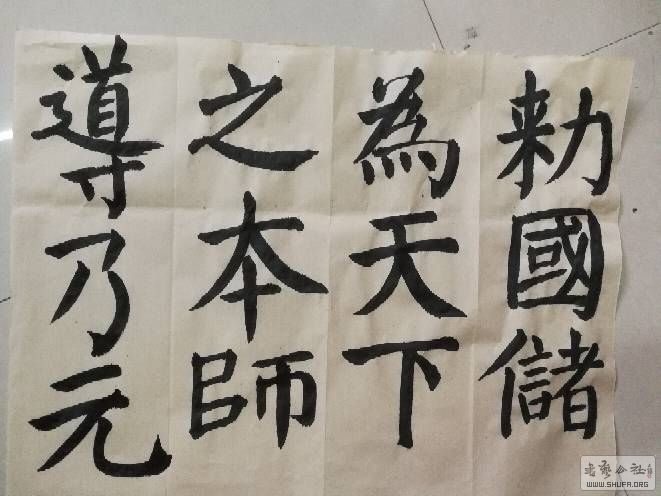 勑國儲
為天下
之本師
導乃元
書藝公社
WWW.SHUFA.ORG